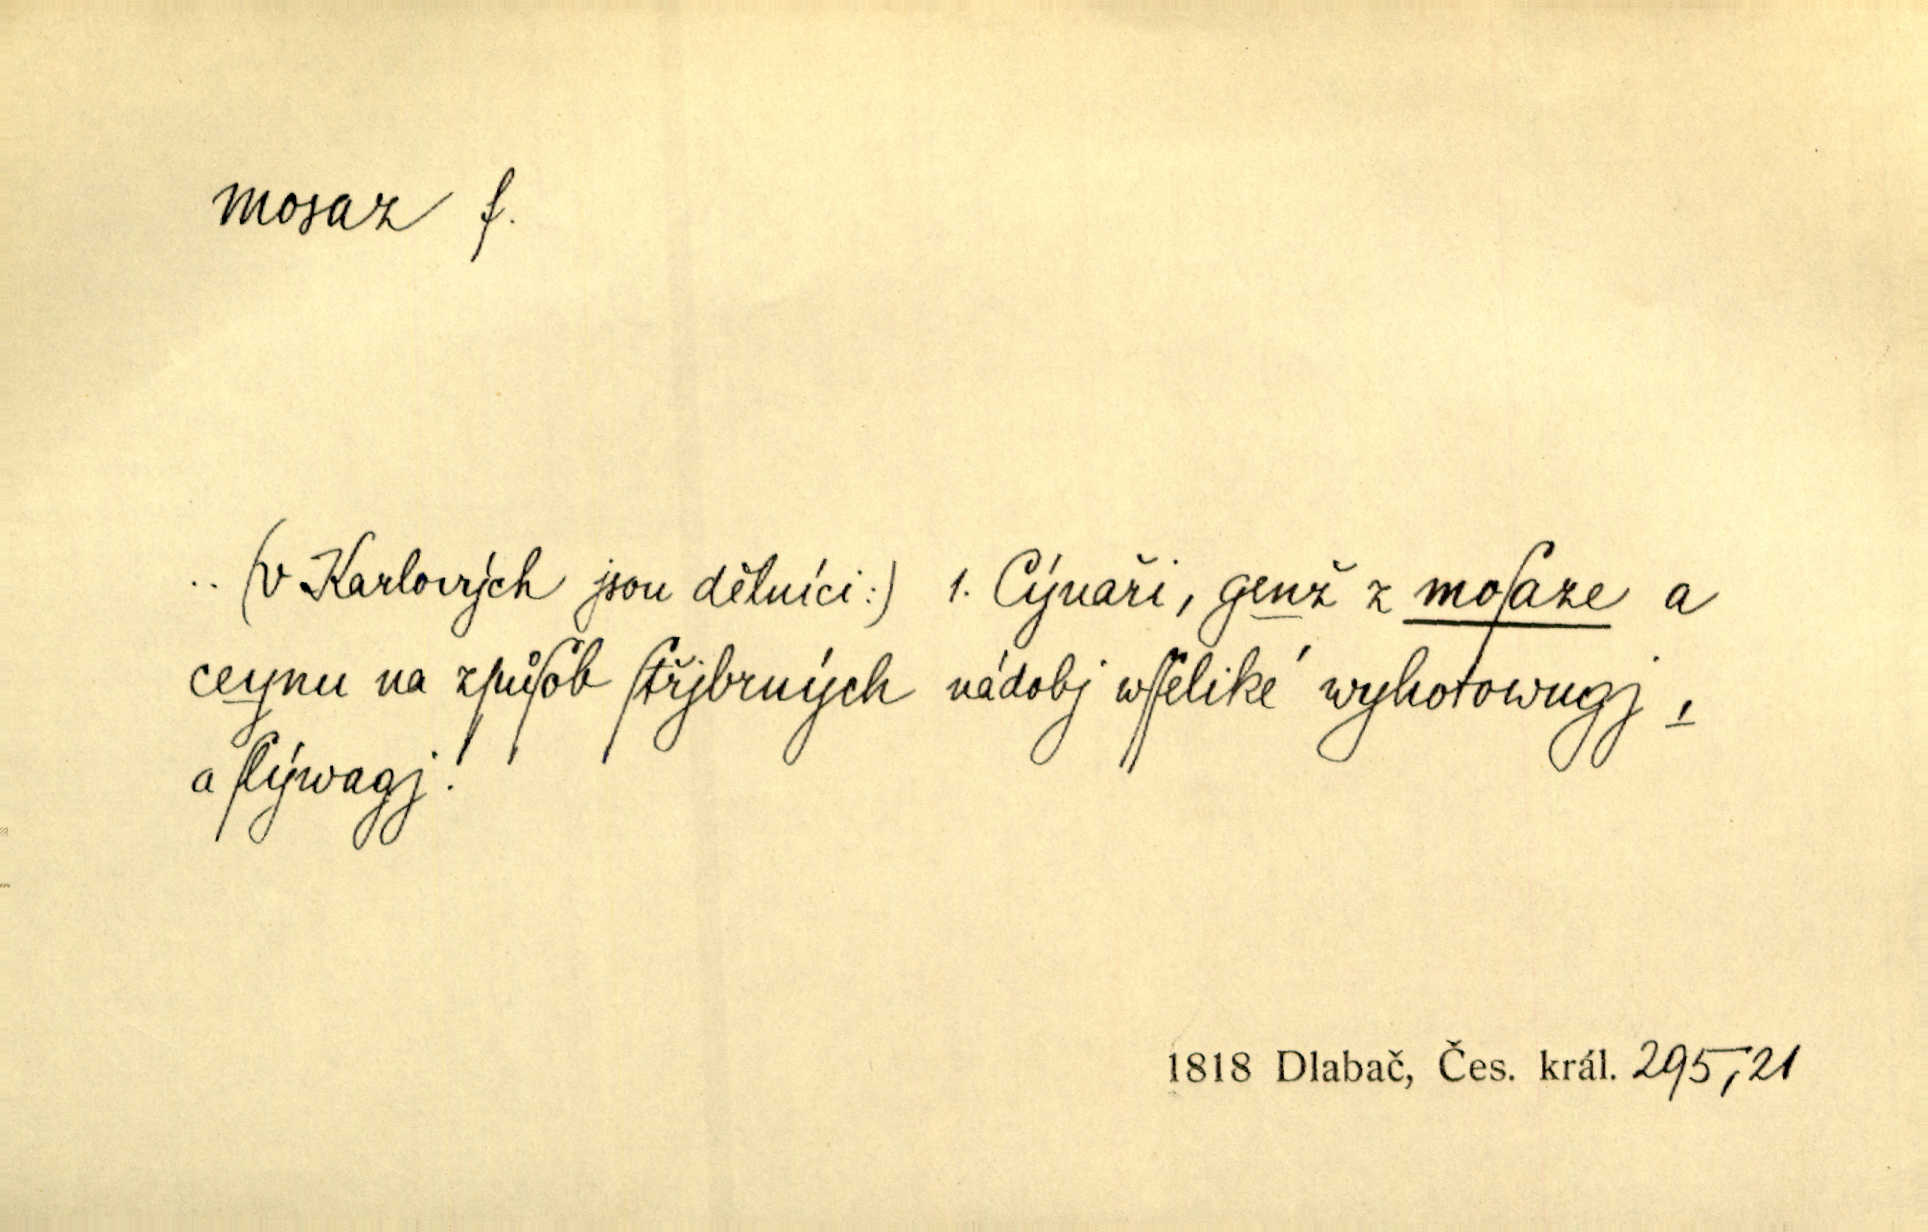 mosaz f.
.. (v Karlových jsou dělníci:) 1. Cýnaři, genž z moſaze a
ceynu na způſob ſtřjbrných nádobj wſſeliké wyhotowugj,
a ſlýwagj.
1818 Dlabač, Čes. král. 295,21